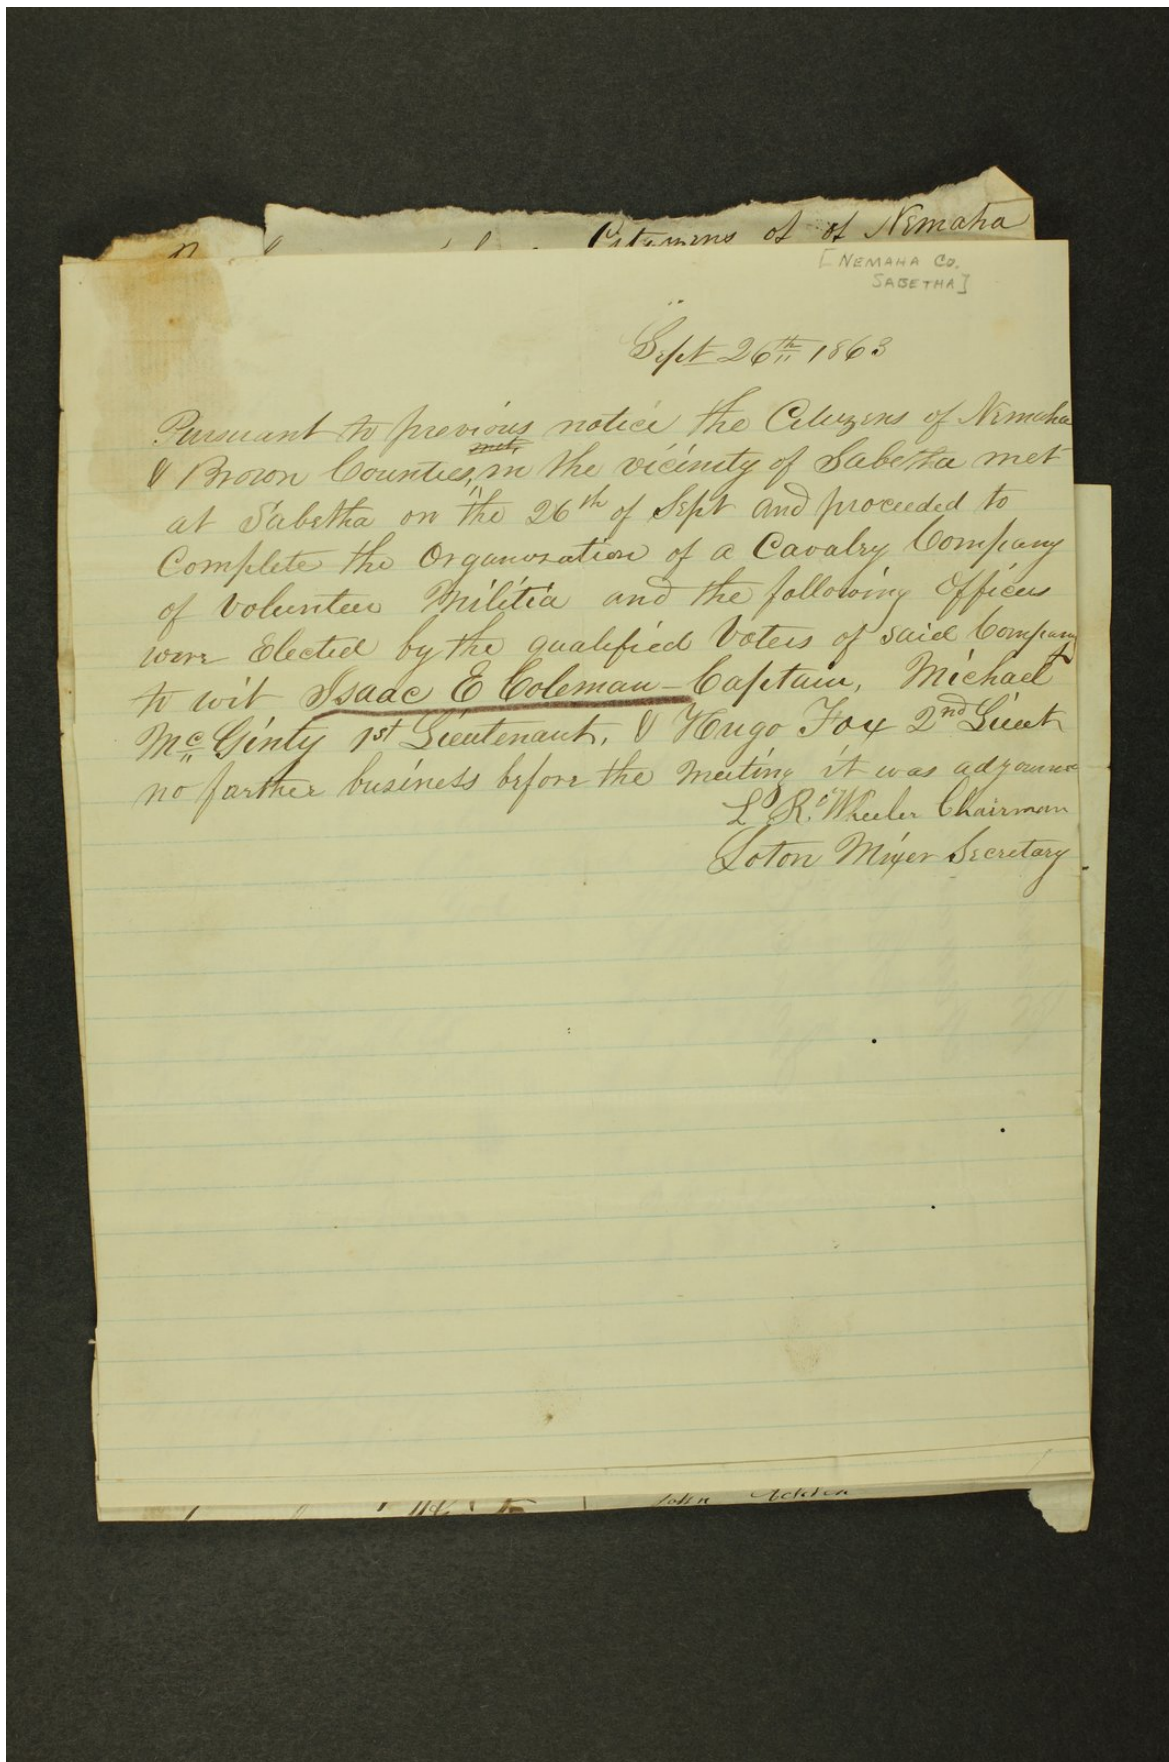 Citizens of of Nemaha
[NEMAHA CO.
SABETHA]
Sept 26th 1863
Pursuant to previous notice the Citizens of Nemaha
met,
& Brown Counties, in the vicinity of Sabetha met
at Sabetha on the 26th of Sept and proceeded to
Complete the Organization of a Cavalry Company
of Volunteer Militia and the following Officers
were Elected by the qualified Voters of said Company
to wit Isaac E Coleman - Captain, Michael
Mc Ginty 1st Lieutenant, & Hugo Fox 2nd Lieut
no farther business before the meeting it was adjourned
L. R. Wheeler Chairman
Loton Mixer Secretary
John